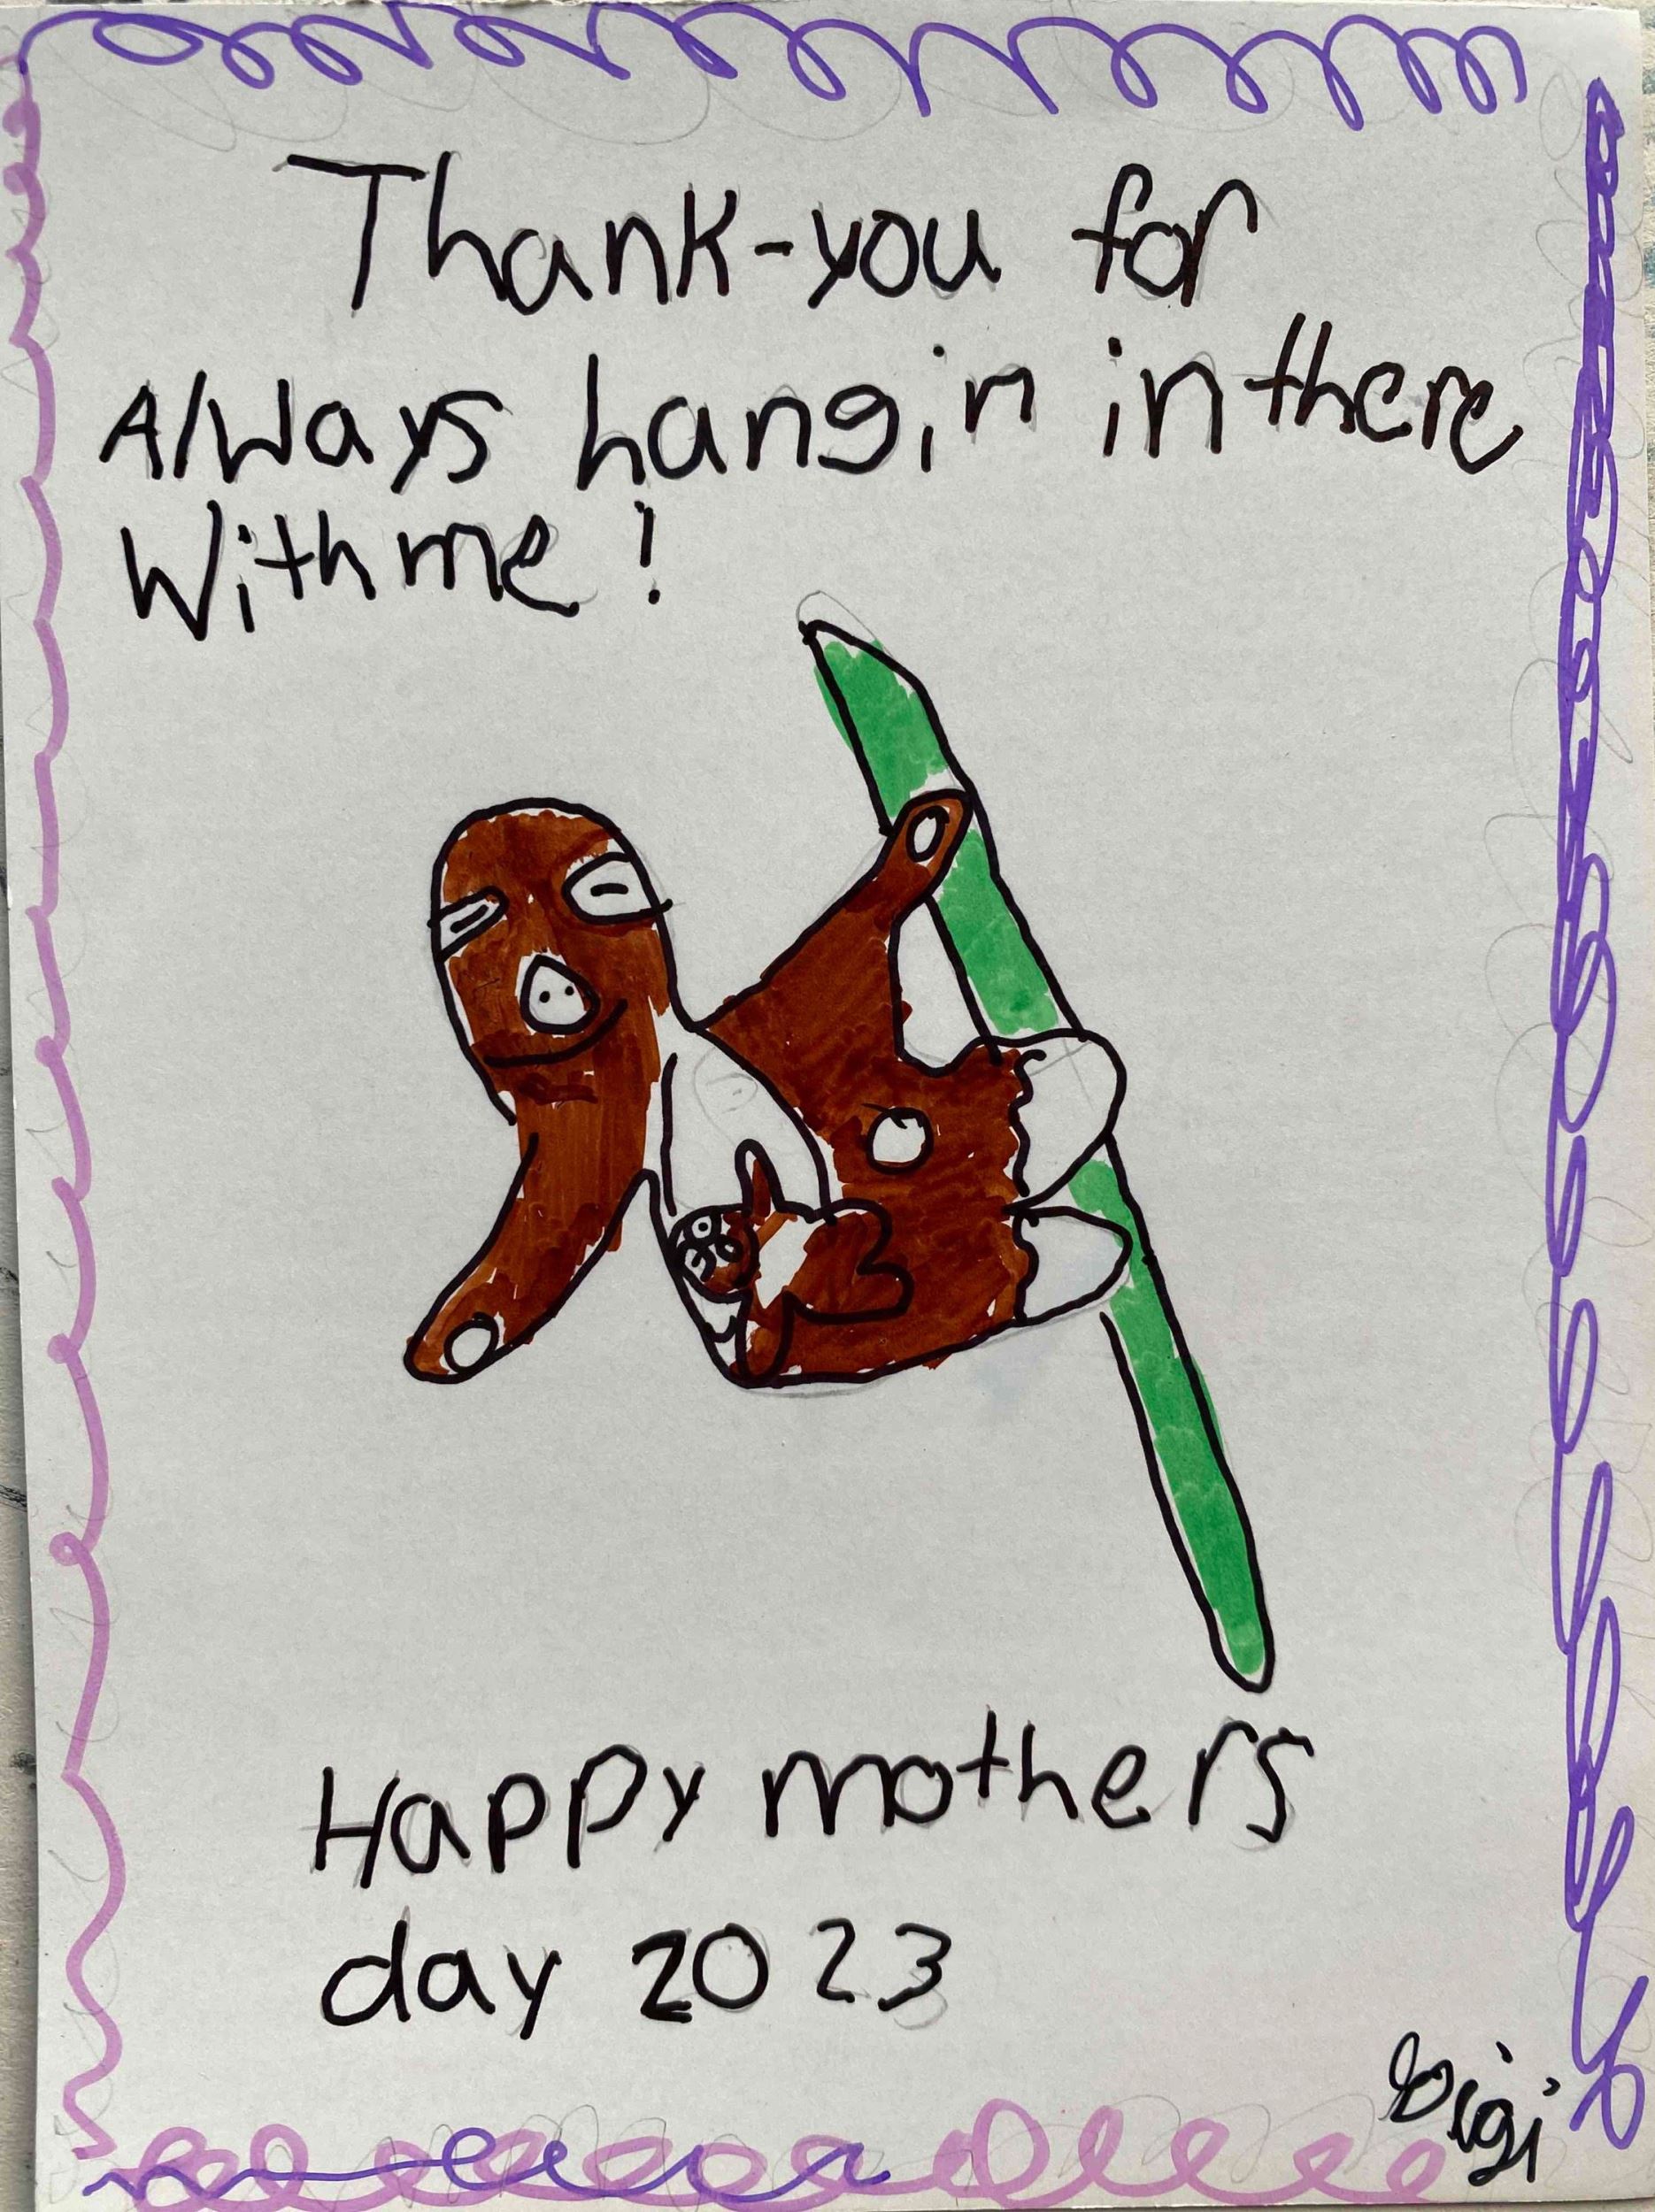 Thank-you for
Always hangin in there
With me!
Happy mothers
day 2023
Gigi